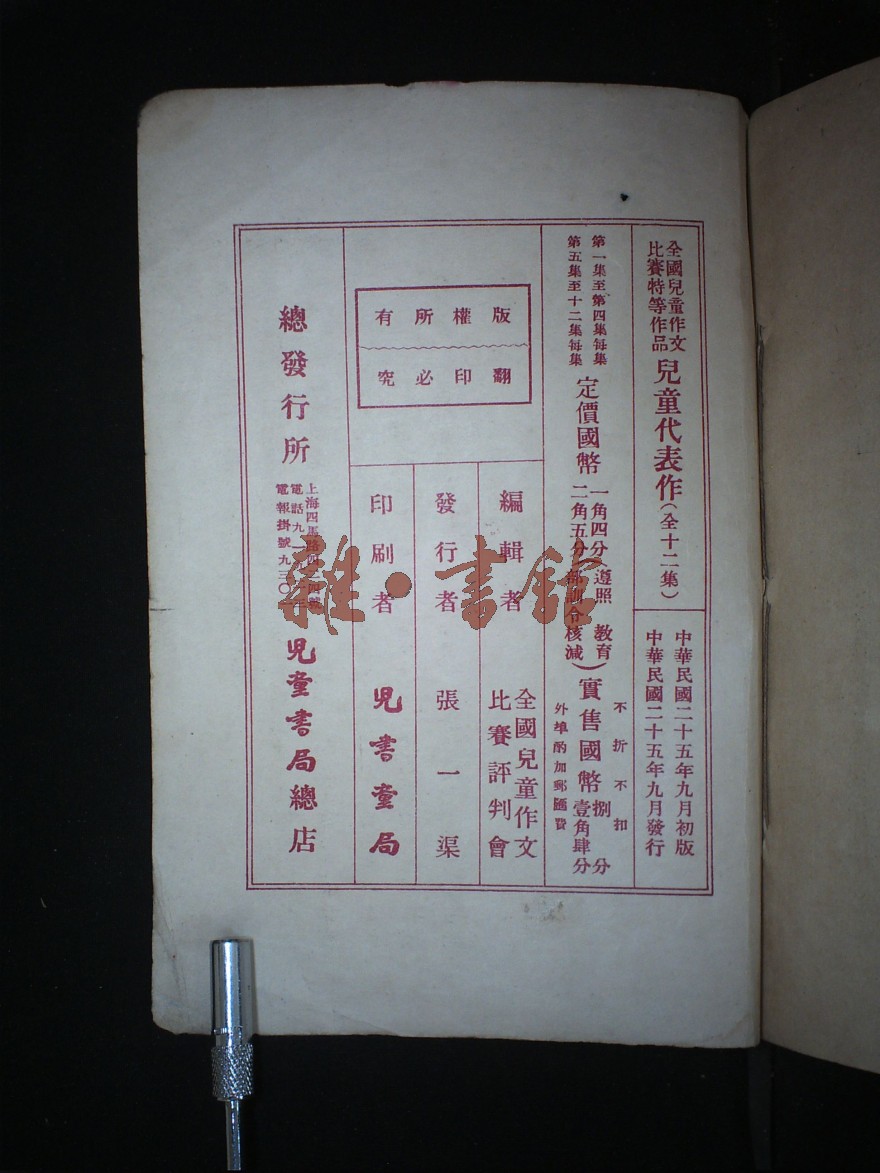 全國兒童作文
比賽特等作品
兒童代表作(全十二集)
中華民國二十五年九月初版
中華民國二十五年九月發行
第一集至第四集每集
第五集至十二集每集
定價國幣
一角四分
二角五分
(遵照 教育
部訓令核減)
實售國幣
捌分
壹角肆分
不折不扣
外埠酌加郵匯費
版權所有
翻印必究
編輯者
全國兒童作文
比賽評判會
發行者
張一渠
印刷者
兒童書局
總發行所
上海四馬路
電話九
電報掛號九三〇
兒童書局總店
雜·書館